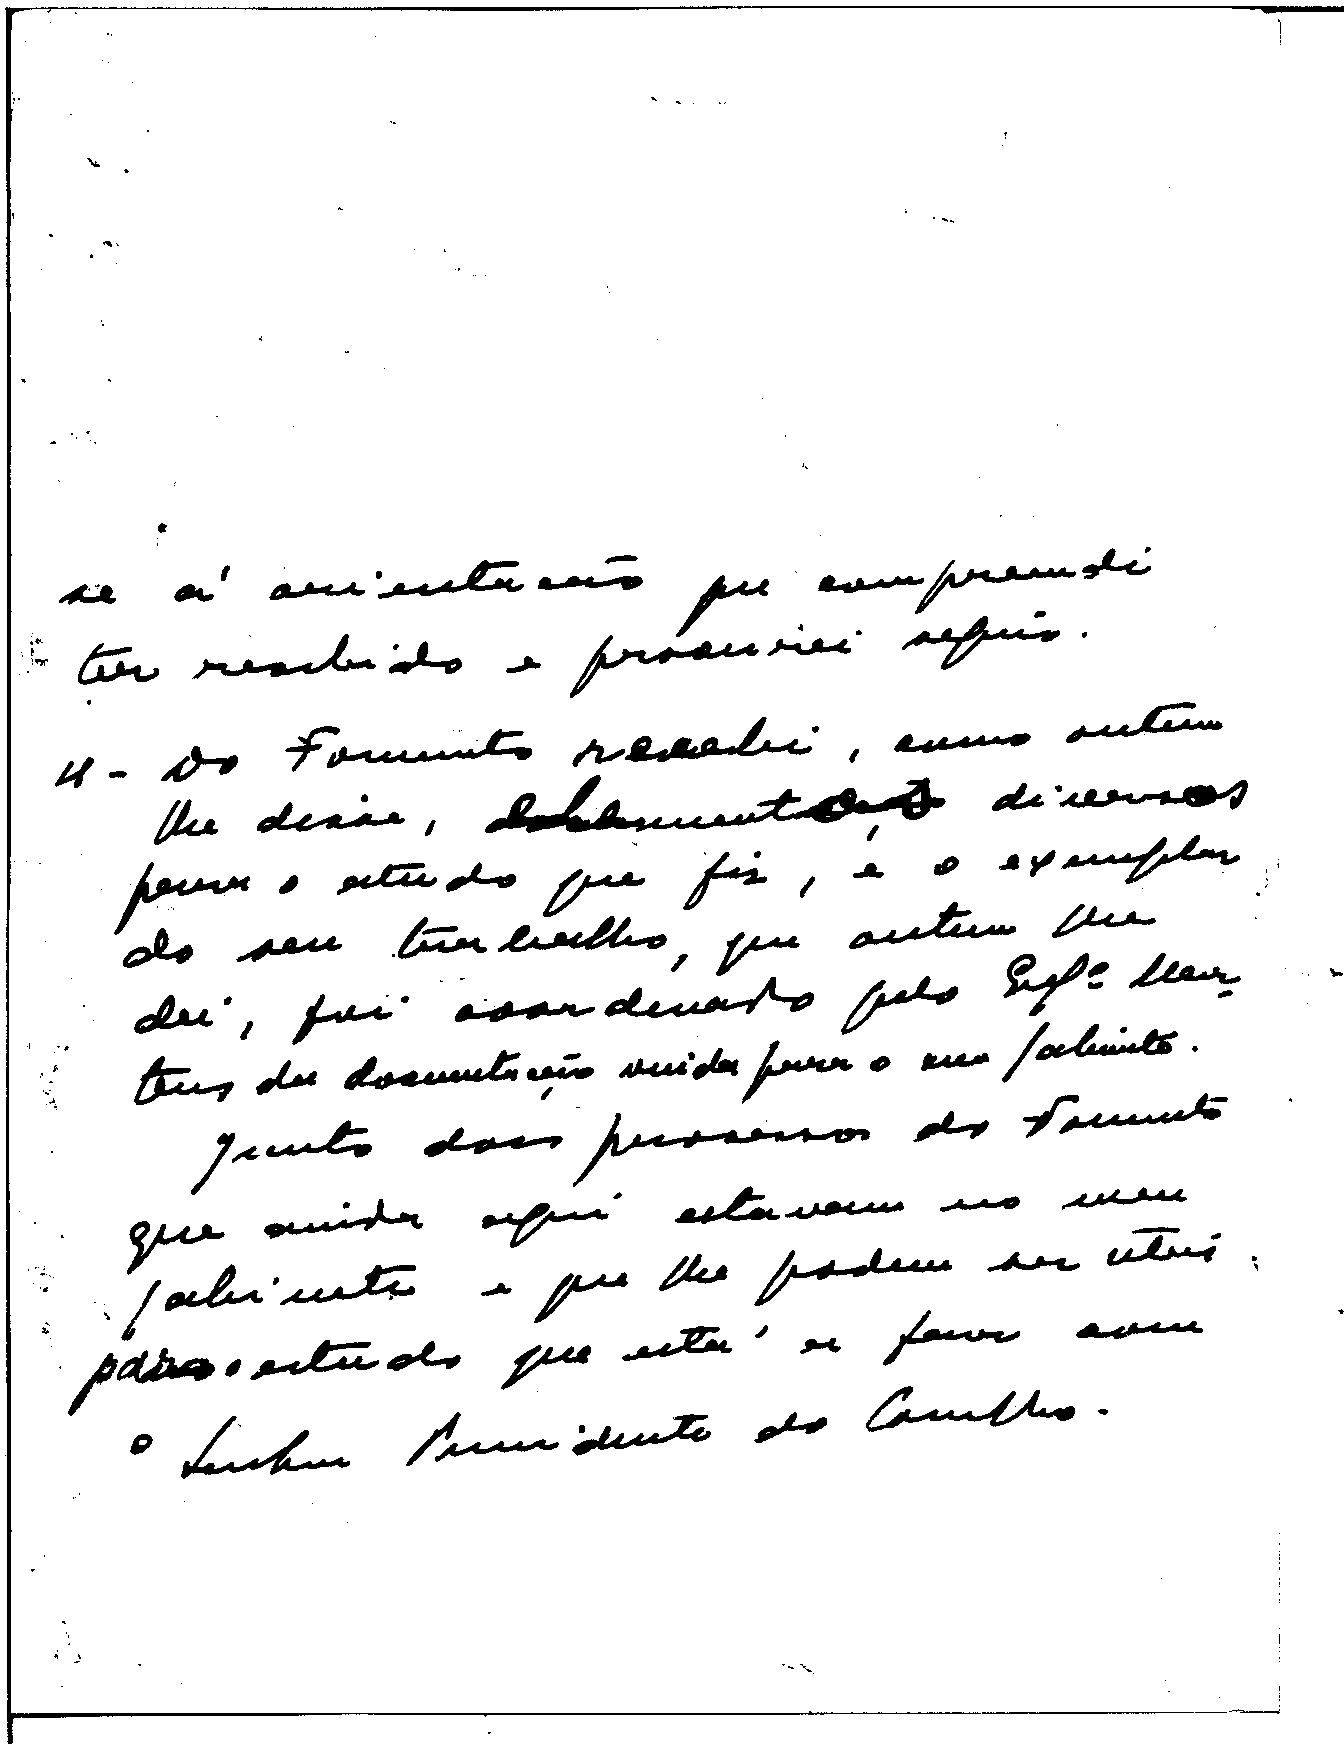 se á orientação que compreendi
ter recebido e procurei seguir.
4 - Do Fomento recebi, como ontem
lhe disse, documentos diversos
para o estudo que fiz, e o exemplar
do seu trabalho, que ontem lhe
dei, foi coordenado pelo Engº Mar-
tins da documentação vinda para o meu gabinete.
Junto dois processos do Fomento
que ainda aqui estavam no meu
gabinete e que lhe podem ser uteis
para o estudo que está a fazer com
o Senhor Presidente do Conselho.